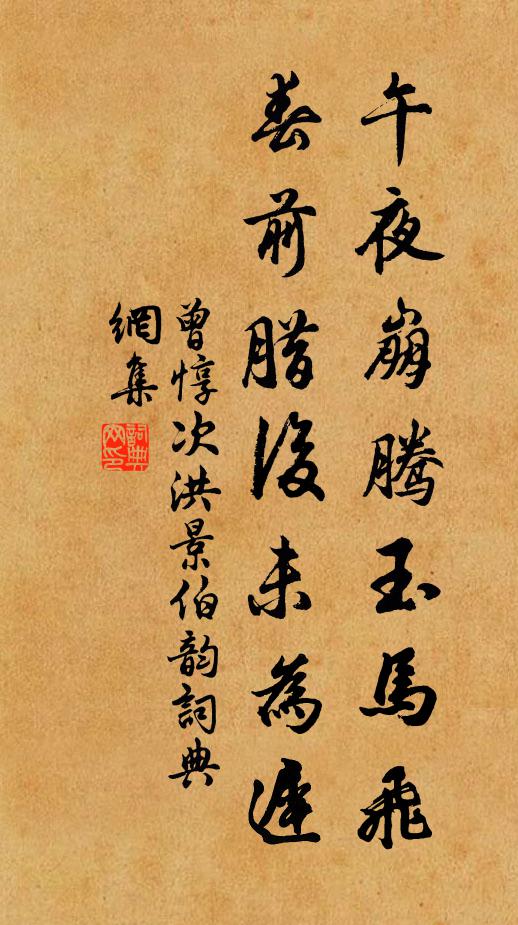 午夜崩騰玉馬飛
春前腊後未為遲
曾惇次洪景伯韵詞典
網集
詞典
网印